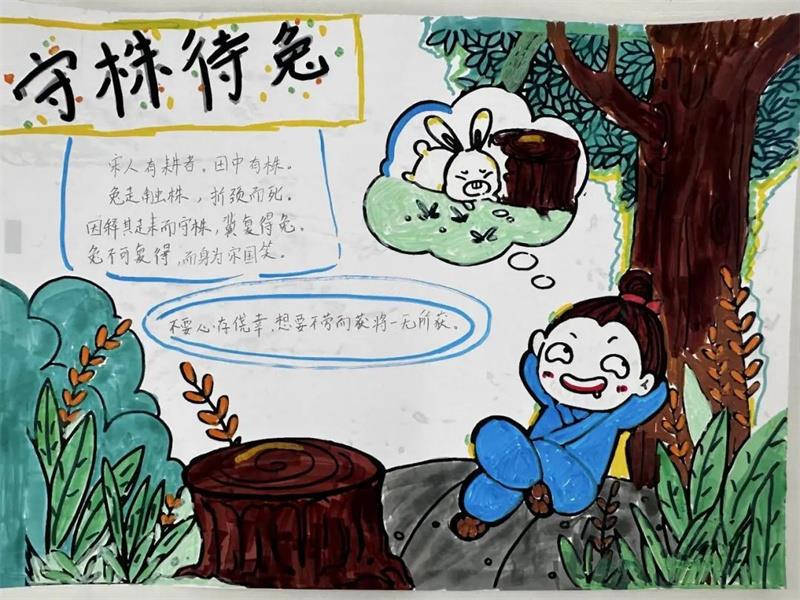 守株待兔
宋人有耕者。田中有株。
兔走触株，折颈而死。
因释其耒而守株，冀复得兔。
兔不可复得，而身为宋国笑。
不要心存侥幸，想要不劳而获将一无所获。